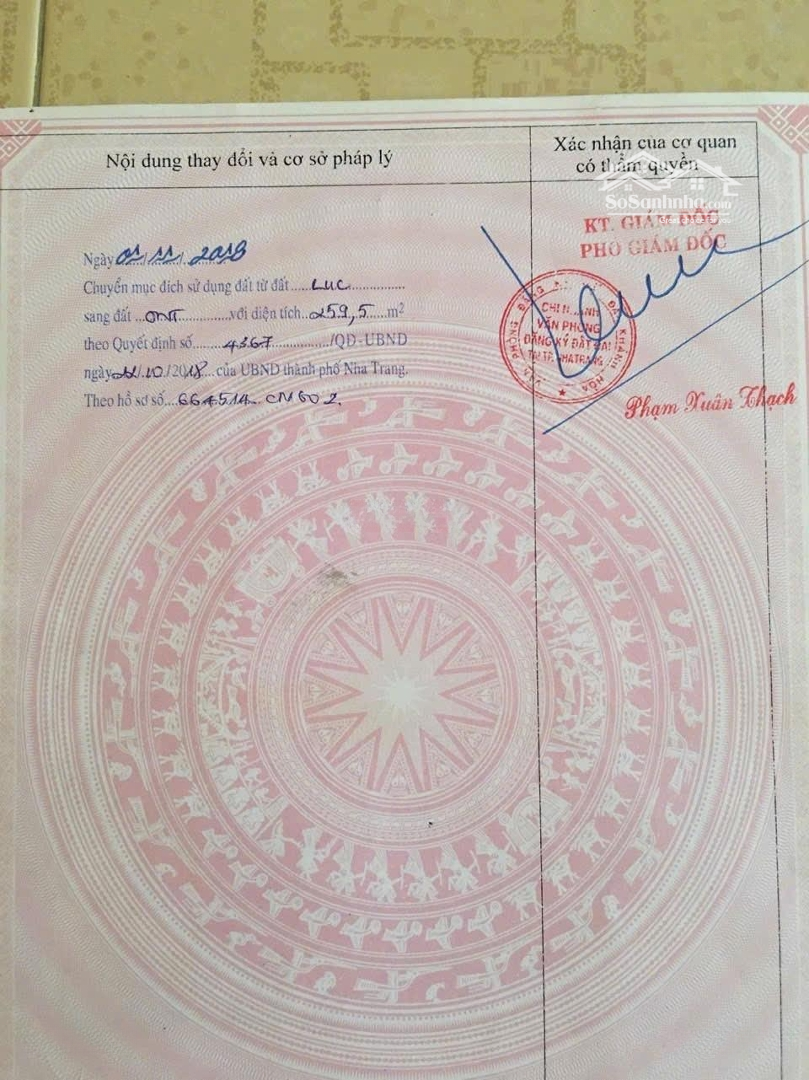 Nội dung thay đổi và cơ sở pháp lý
Xác nhận của cơ quan
có thẩm quyền
SoSanhnha.com
KT. GIÁM ĐỐC
PHO GIÁM ĐỐC
Ngày 01/11/2018
Chuyển mục đích sử dụng đất từ đất....LUC...............
sang đất ...ONT..........với diện tích...259,5....m²
theo Quyết định số........4367.........../QĐ-UBND
ngày 22/10/2018 của UBND thành phố Nha Trang.
Theo hồ sơ số....664514 CN602.
VĂN PHÒNG ĐĂNG ĐẤT KHÁNH HÒA
CHI NHÁNH
VĂN PHÒNG
ĐĂNG KÝ ĐẤT ĐAI
TẠI TP. NHA TRANG
Phạm Xuân Thạch